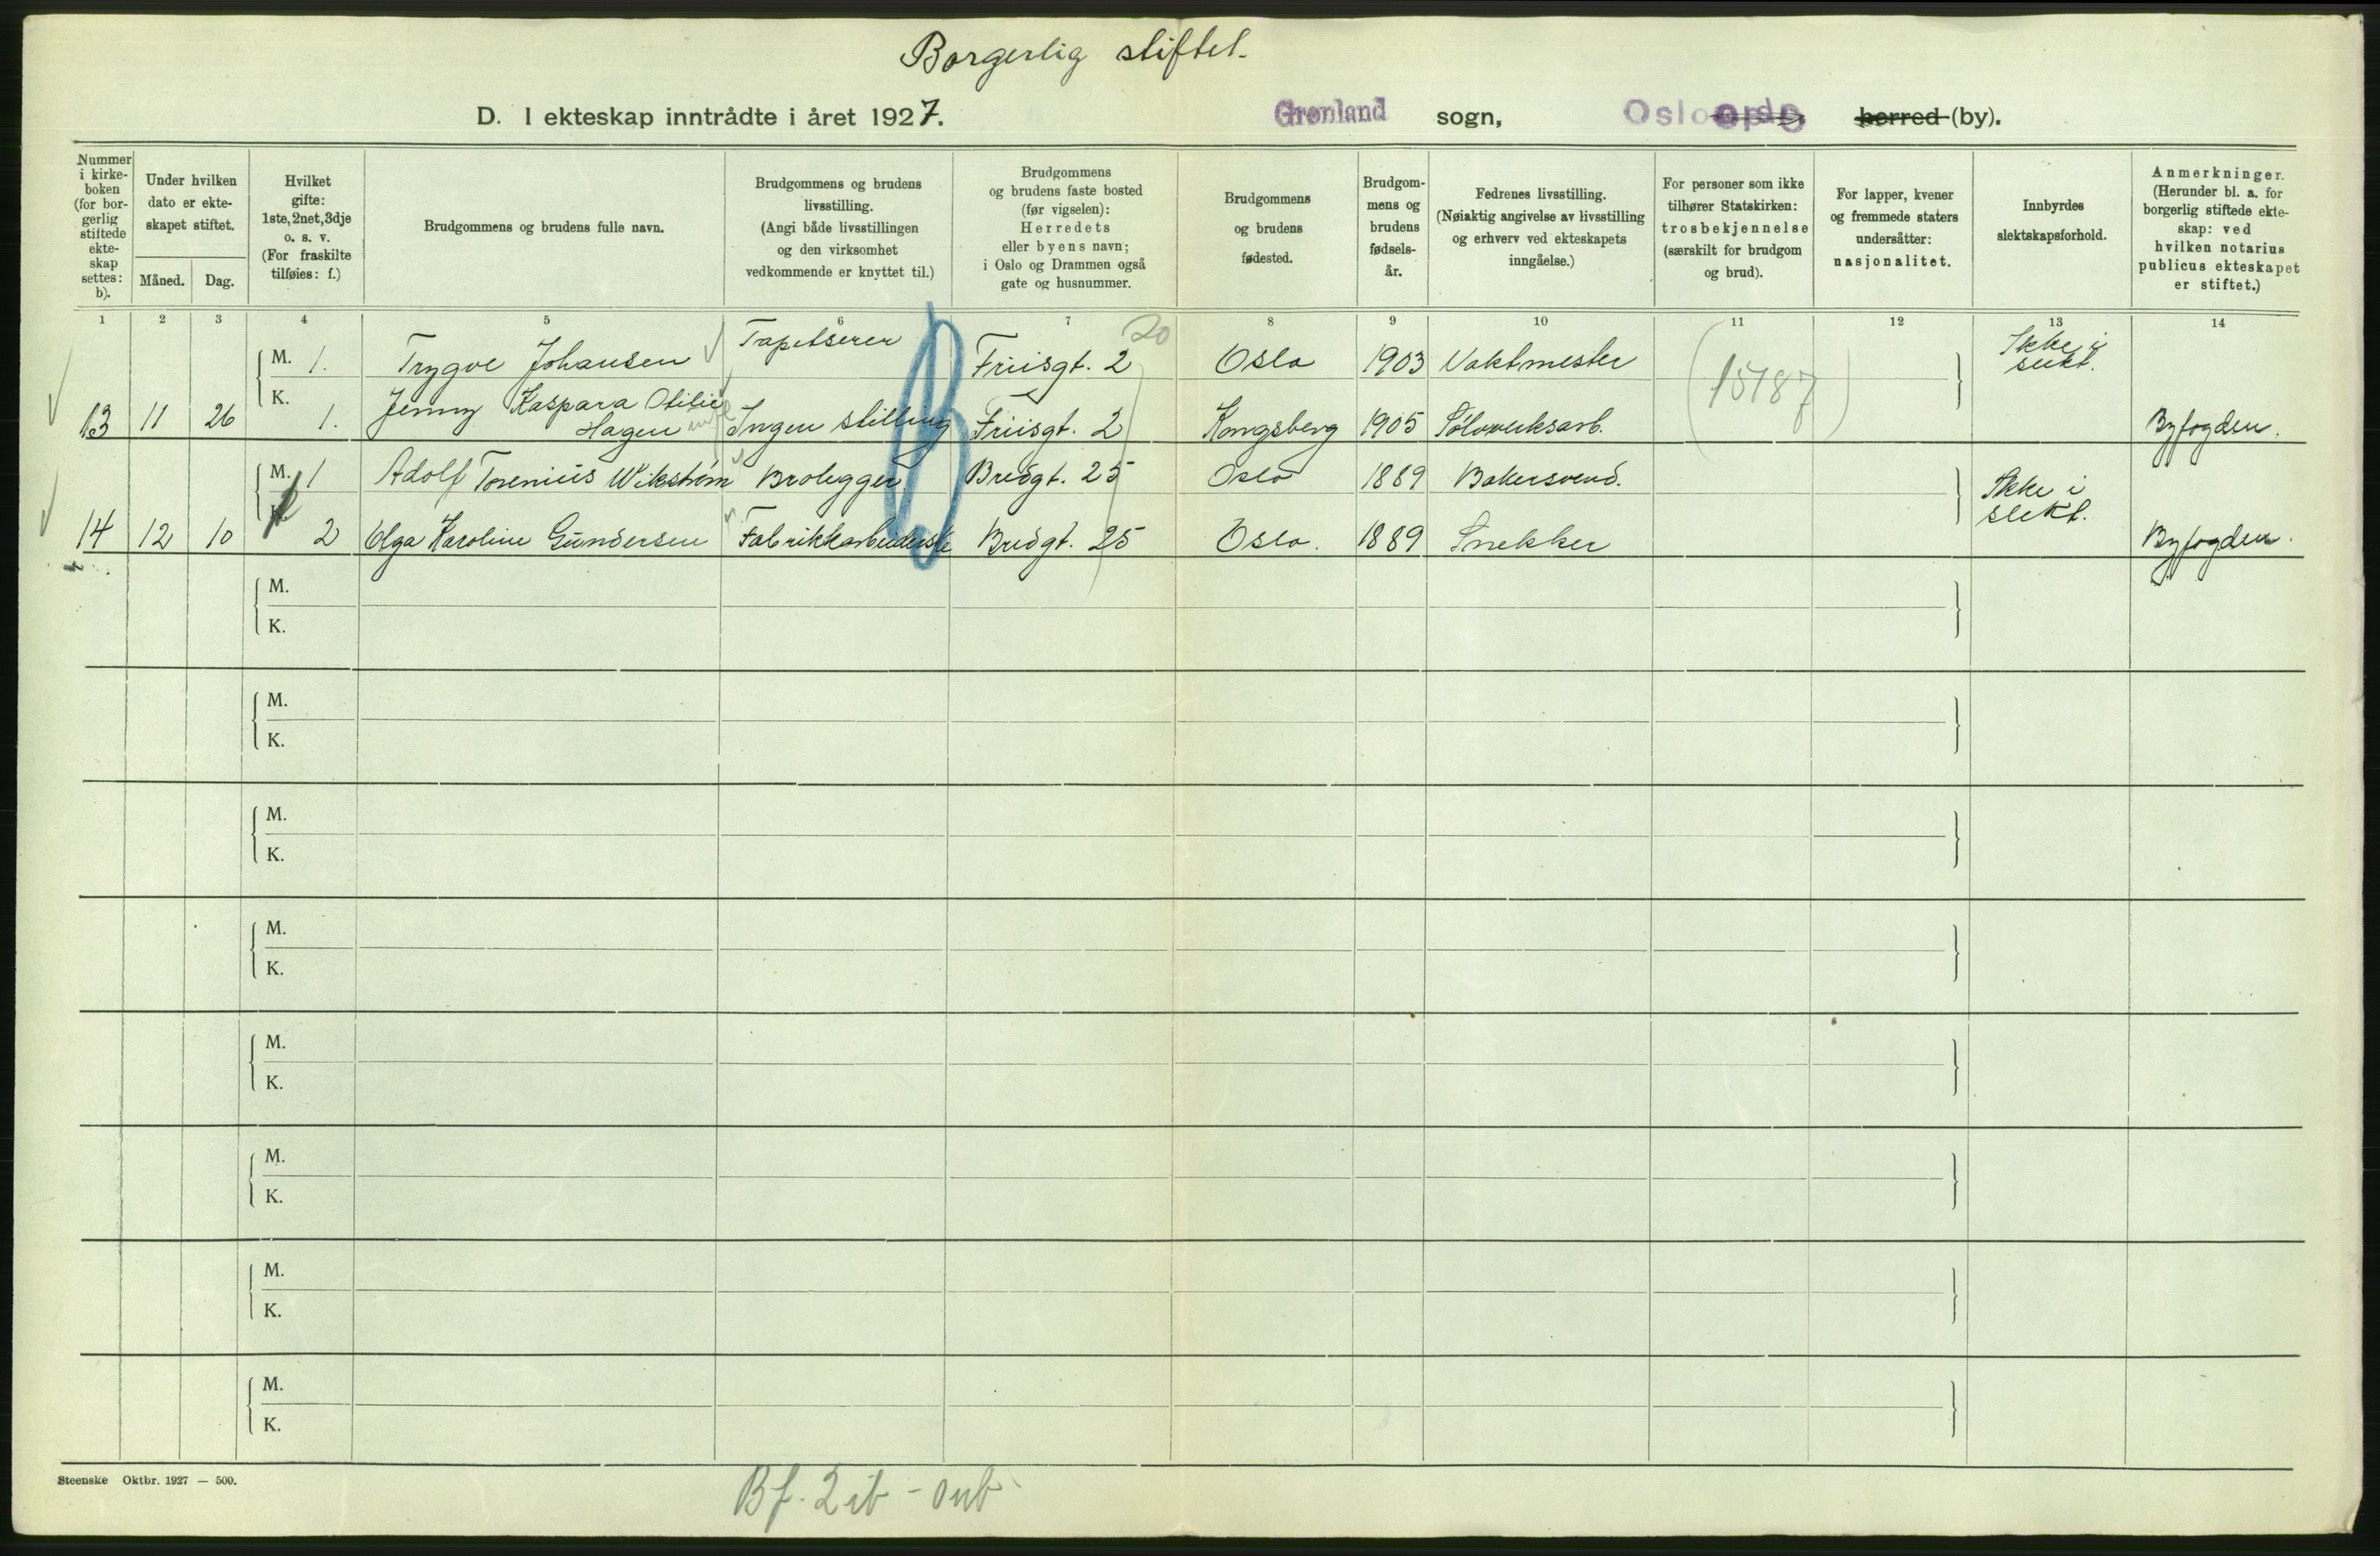 Borgerlig stiftet.
D. I ekteskap inntrådte i året 1927. Grønland sogn, Oslo herred (by).
Nummer i kirke-boken (for bor-gerlig stiftede ekte-skap settes: b).
Under hvilken dato er ekte-skapet stiftet.
Måned. Dag.
Hvilket gifte: 1ste, 2net, 3dje o. s. v. (For fraskilte tilføies: f.)
Brudgommens og brudens fulle navn.
Brudgommens og brudens livsstilling. (Angi både livsstillingen og den virksomhet vedkommende er knyttet til.)
Brudgommens og brudens faste bosted (før vigselen): Herredets eller byens navn; i Oslo og Drammen også gate og husnummer.
Brudgommens og brudens fødested.
Brudgom-mens og brudens fødsels-år.
Fedrenes livsstilling. (Nøiaktig angivelse av livsstilling og erhverv ved ekteskapets inngåelse.)
For personer som ikke tilhører Statskirken: trosbekjennelse (særskilt for brudgom og brud).
For lapper, kvener og fremmede staters undersåtter: nasjonalitet.
Innbyrdes slektskapsforhold.
Anmerkninger. (Herunder bl. a. for borgerlig stiftede ekte-skap: ved hvilken notarius publicus ekteskapet er stiftet.)
1 2 3 4 5 6 7 8 9 10 11 12 13 14
20
M. 1. Trygve Johansen Tapetserer Friisgt. 2 Oslo 1903 Vaktmester Ikke i slekt.
(15187)
13 11 26 K. 1. Jenny Kaspara Otilie Hagen Ingen stilling Friisgt. 2 Kongsberg 1905 Sølvverksarb. Byfogden.
M. 1 Adolf Torenius Wikstrøm Brolegger Bredgt. 25 Oslo 1889 Bakersvend. Ikke i slekt.
14 12 10 K. 2 Olga Karoline Gundersen Fabrikkarbeiderske Bredgt. 25 Oslo. 1889 Snekker Byfogden.
B
M.
K.
M.
K.
M.
K.
M.
K.
M.
K.
M.
K.
M.
K.
M.
K.
Steenske Oktbr. 1927 — 500.
Bf. 2 ib - oub